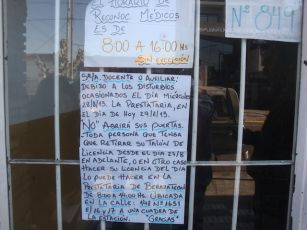 EL HORARIO DE
RECONOC. MEDICOS
ES DE
8:00 A 16:00 HS
SIN EXCEPCIÓN
Nº 849
SR/A. DOCENTE O AUXILIAR:
DEBIDO A LOS DISTURBIOS
OCASIONADOS EL DIA MIERCOLES
28/8/13. LA PRESTATARIA, EN
EL DIA DE HOY 29/8/13.
"NO" ABRIRÁ SUS PUERTAS.
TODA PERSONA QUE TENGA
QUE RETIRAR SU TALÓN DE
LICENCIA DESDE EL DIA 29/8
EN ADELANTE, O EN OTRO CASO
HACER SU LICENCIA DEL DIA
LO PUEDE HACER EN LA
PRESTATARIA DE BERAZATEGUI
DE 8:00 A 14:00 HS UBICADA
EN LA CALLE: 148 Nº 1651
E/16 Y 17 A UNA CUADRA DE
LA ESTACIÓN. "GRACIAS"